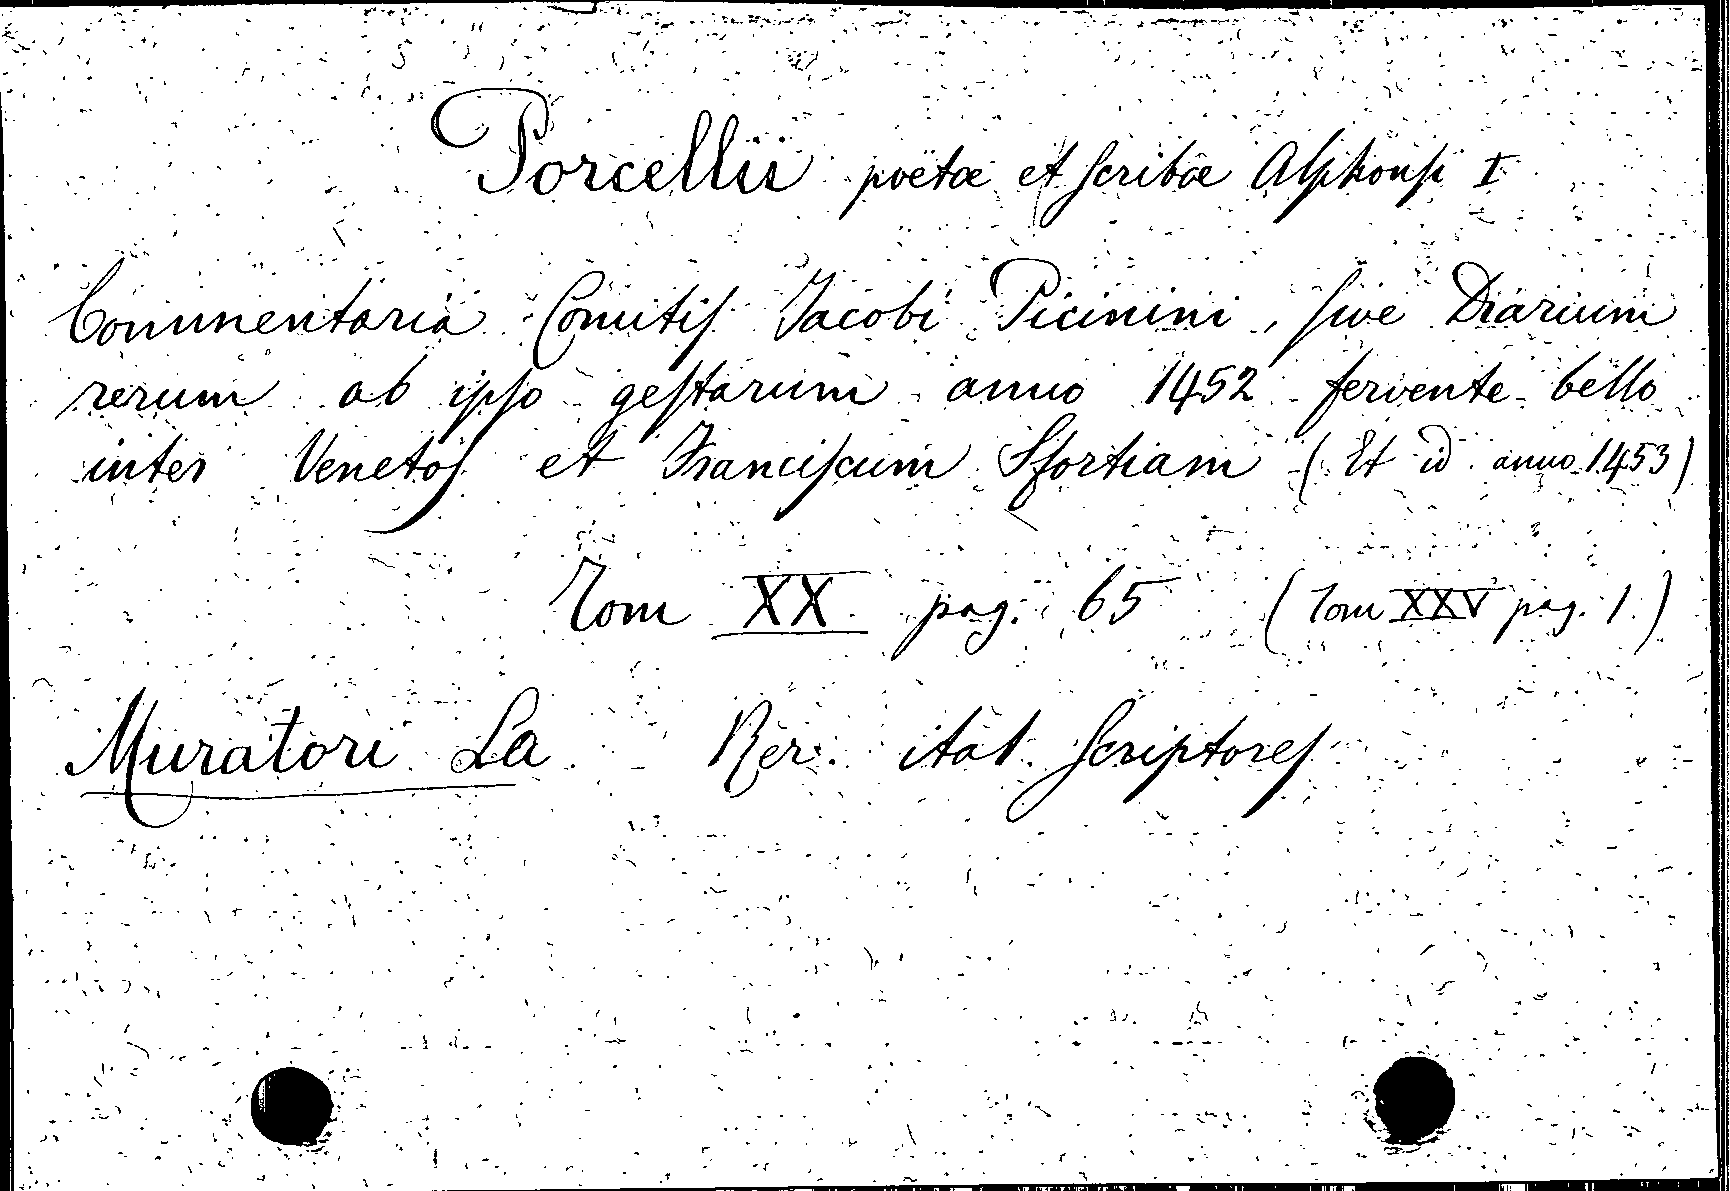 Porcellii poetæ et scribæ Alphonsi I
Commentaria Comitis Jacobi Picinini, sive Diarium
rerum ab ipso gestarum anno 1452 fervente bello
inter Venetos et Franciscum Sfortiam (Et id. anno 1453)
Tom XX pag. 65 (Tom XXV pag. 1.)
Muratori La Rer. ital. Scriptores